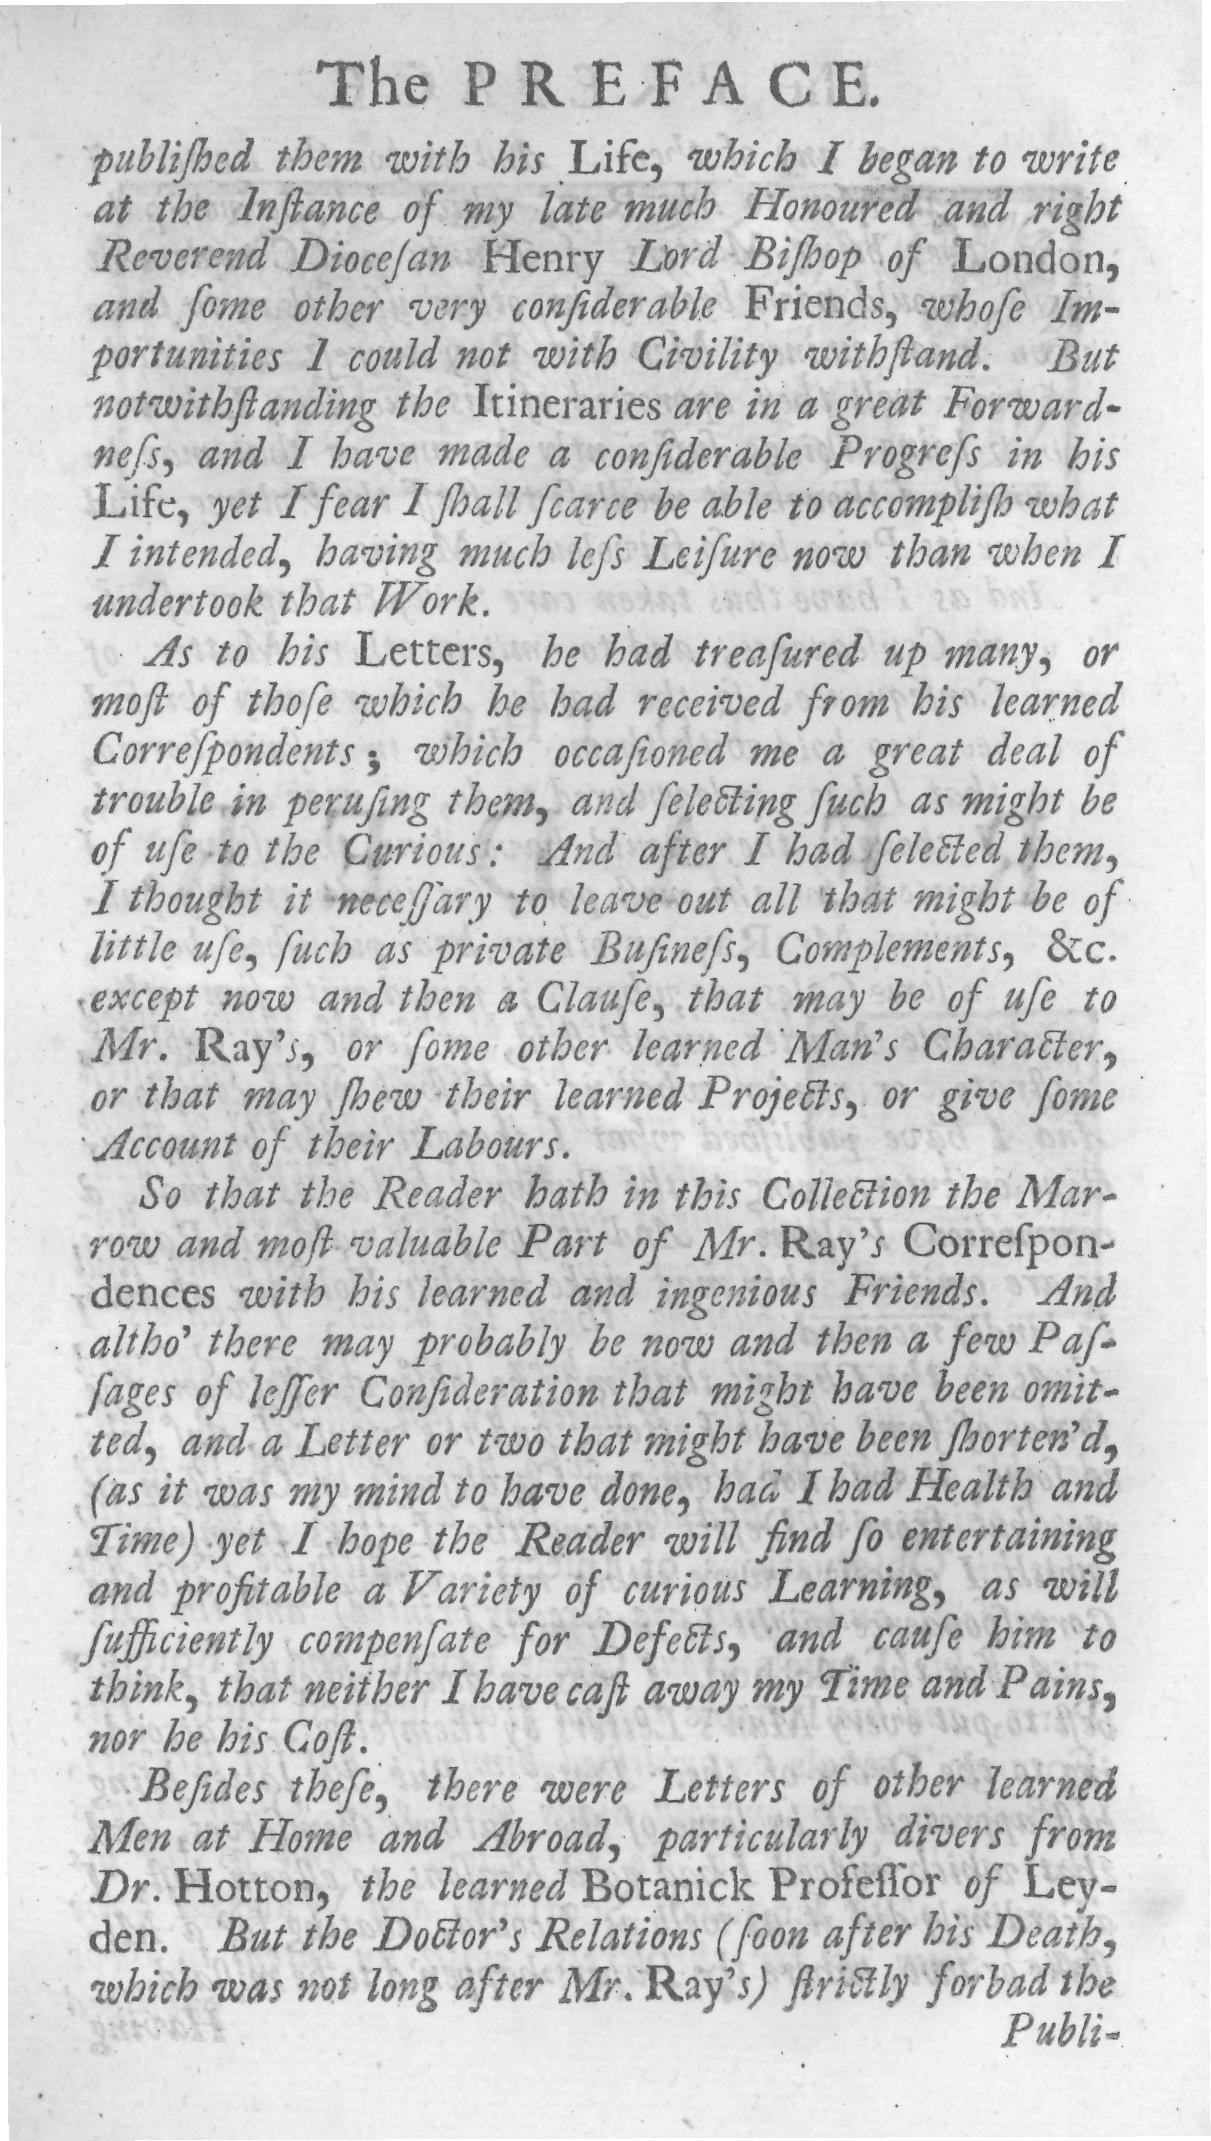 The PREFACE.
publiſhed them with his Life, which I began to write
at the Inſtance of my late much Honoured and right
Reverend Dioceſan Henry Lord Biſhop of London,
and ſome other very conſiderable Friends, whoſe Im-
portunities I could not with Civility withſtand. But
notwithſtanding the Itineraries are in a great Forward-
neſs, and I have made a conſiderable Progreſs in his
Life, yet I fear I ſhall ſcarce be able to accompliſh what
I intended, having much leſs Leiſure now than when I
undertook that Work.
As to his Letters, he had treaſured up many, or
moſt of thoſe which he had received from his learned
Correſpondents; which occaſioned me a great deal of
trouble in peruſing them, and ſelecting ſuch as might be
of uſe to the Curious: And after I had ſelected them,
I thought it neceſſary to leave out all that might be of
little uſe, ſuch as private Buſineſs, Complements, &c.
except now and then a Clauſe, that may be of uſe to
Mr. Ray's, or ſome other learned Man's Character,
or that may ſhew their learned Projects, or give ſome
Account of their Labours.
So that the Reader hath in this Collection the Mar-
row and moſt valuable Part of Mr. Ray's Correſpon-
dences with his learned and ingenious Friends. And
altho' there may probably be now and then a few Paſ-
ſages of leſſer Conſideration that might have been omit-
ted, and a Letter or two that might have been ſhorten'd,
(as it was my mind to have done, had I had Health and
Time) yet I hope the Reader will find ſo entertaining
and profitable a Variety of curious Learning, as will
ſufficiently compenſate for Defects, and cauſe him to
think, that neither I have caſt away my Time and Pains,
nor he his Coſt.
Beſides theſe, there were Letters of other learned
Men at Home and Abroad, particularly divers from
Dr. Hotton, the learned Botanick Profeſſor of Ley-
den. But the Doctor's Relations (ſoon after his Death,
which was not long after Mr. Ray's) ſtrictly forbad the
Publi-